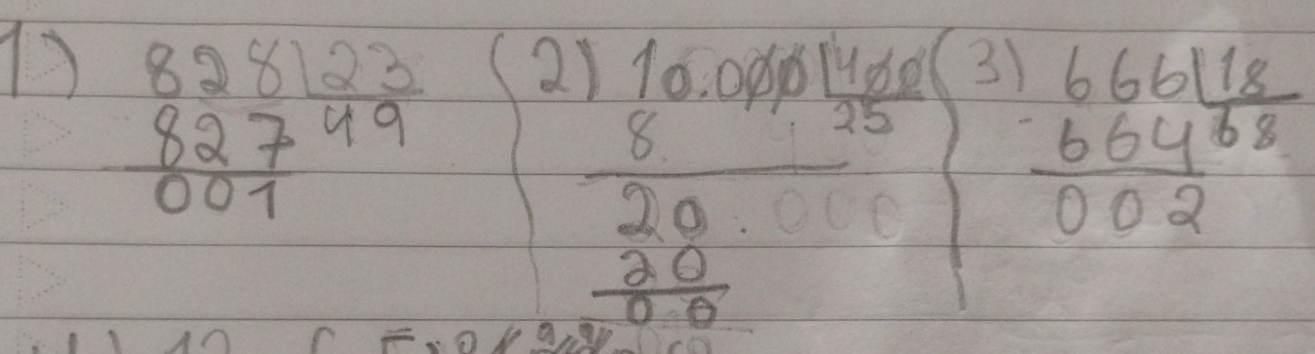 1) 828 23 2) 10.000 400 3) 666 18
827 49 8 25 - 664 68
001 20.000 002
20
00